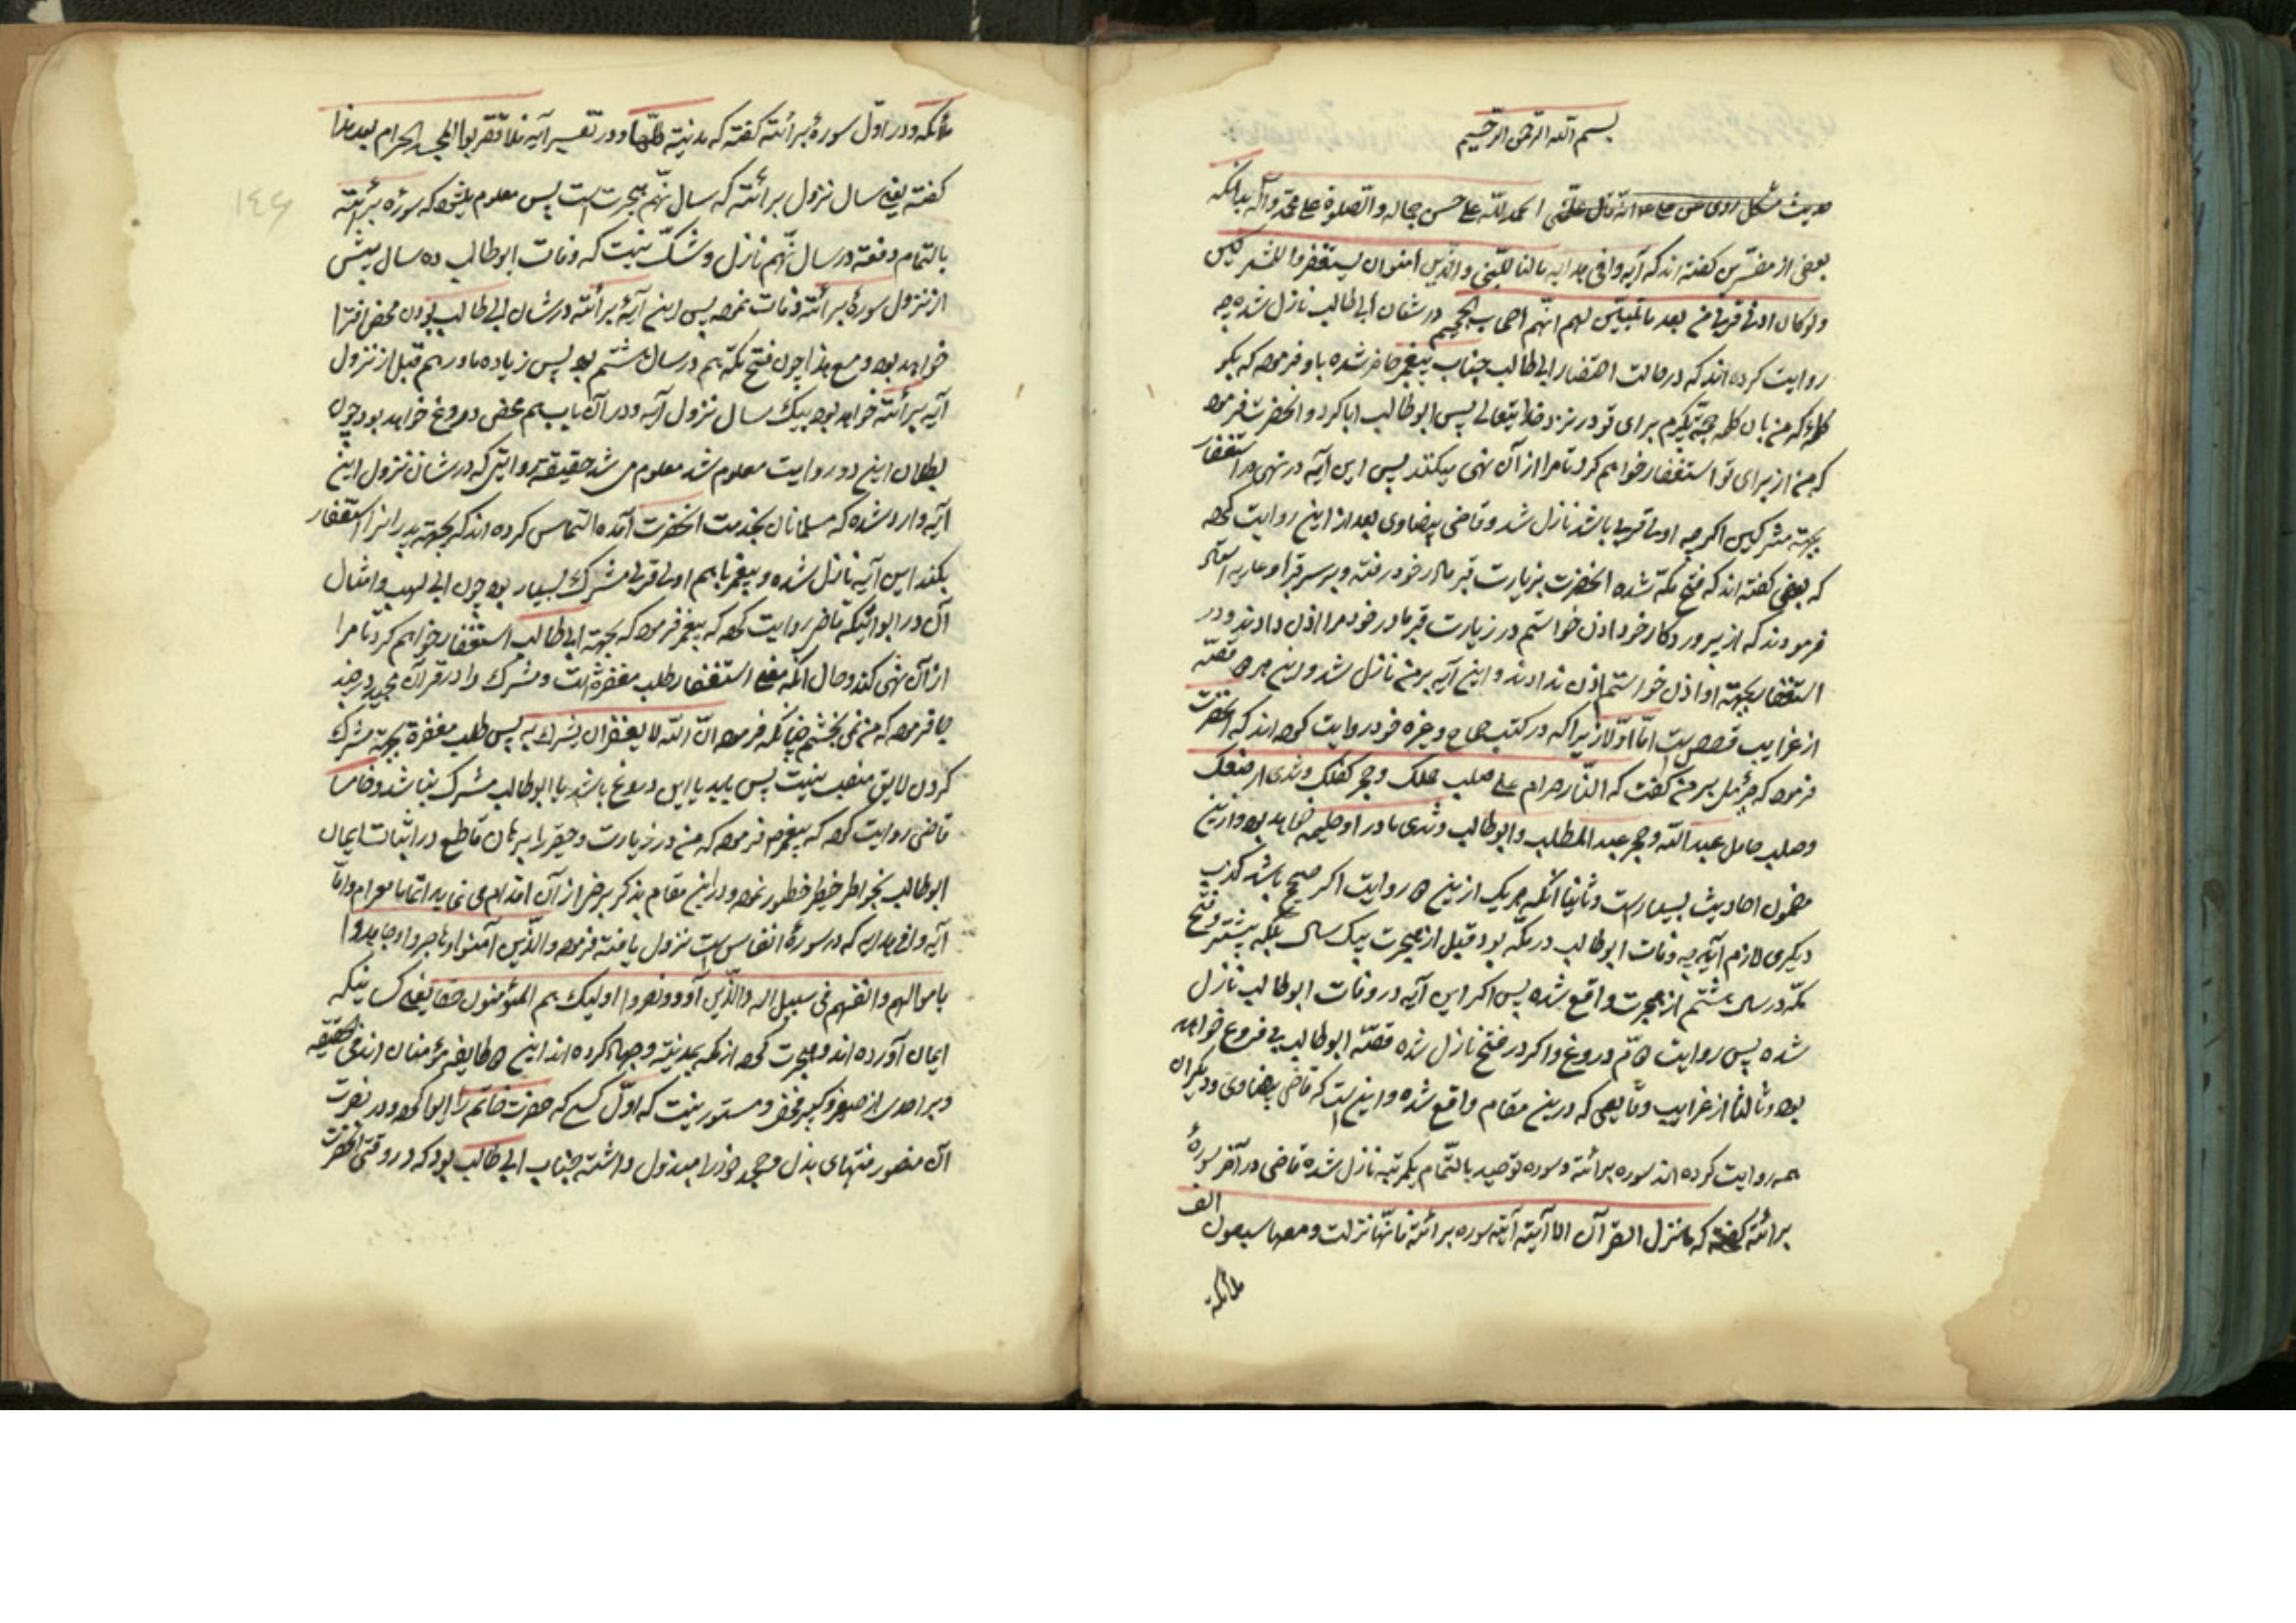 بسم الله الرحمن الرحیم
حدیث مشکل روی عن علی انه قال علمنی الحمد لله علی حسن جماله والصلوة علی محمد وآله بدانکه
بعضی از مفسرین گفته‌اند که آیه وافی هدایه ما کان للنبی والذین امنوا ان یستغفروا للمشرکین
ولو کان اولی قربی من بعد ما تبین لهم انهم اصحاب الجحیم در شان ابی طالب نازل شده چه
روایت کرده‌اند که در حالت احتضار ابی طالب جناب پیغمبر حاضر شده باو فرموده که بگو
کلمهٔ که من بان کلمه حجة بگیرم برای تو در نزد خدایتعالی پس ابوطالب ابا کرد و انحضرت فرمود
که من از برای تو استغفار خواهم کرد تا مرا از آن نهی میکنند پس این آیه در نهی از استغفار
بجهته مشرکین اگر چه اولی قربی باشد نازل شد و قاضی بیضاوی بعد از این روایت کرده
که بعضی گفته‌اند که فتح مکه شده انحضرت بزیارت قبر مادر خود رفته و بر سر قبر او
فرمودند که از پروردکار خود اذن خواستم در زیارت قبر مادر خود مرا اذن دادند و در
استغفار بجهته او اذن خواستم اذن ندادند و این آیه بر من نازل شد و این هر دو قصّه
از غرایب قصص است امّا اوّلا زیرا که در کتب صحاح وغیره خود روایت کرده‌اند که انحضرت
فرموده که جبرئیل بر من گفت که النّار حرام علی صلب حملک و حجر کفلک و ثدی ارضعک
وصلب حامل عبد الله و حجر عبد المطلب و ابوطالب و ثدی مادر او حلیمه خواهد بود و ازین
مضمون احادیث بسیار است وثانیا آنکه هر یک ازین دو روایت اگر صحیح باشد کذب
دیگری لازم آید چه وفات ابوطالب در مکه بود قبل از هجرت بیک سال بلکه بیشتر و فتح
مکّه در سال هشتم از هجرت واقع شده پس اگر این آیه در وفات ابوطالب نازل
شده پس روایت دوّم دروغ و اگر در فتح نازل شده قصّه ابوطالب بی فروغ خواهد
بود وثالثا از غرایب وقایعی که درین مقام واقع شده و این است که قاضی بیضاوی و دیگران
همه روایت کرده‌اند سوره برائة و سوره توحید بالتّمام یکمرتبه نازل شده قاضی در آخر سورهٔ
برائة گفته که ما نزل القرآن الا آیة آیة سوره برائة فانّها نزلت ومعها سبعون الف
ملائکة
ملائکه و در اوّل سورهٔ برائة گفته که مدنیة کلّها و در تفسیر آیه فلا تقربوا المسجد الحرام بعد هذا
گفته یعنی سال نزول برائة که سال نهم هجرت است پس معلوم میشود که سورهٔ برائة
بالتمام دفعة در سال نهم نازل و شکّ نیست که وفات ابوطالب ده سال پیش
از نزول سورهٔ برائة وفات نموده پس این آیهٔ برائة در شان ابی طالب بودن محض افترا
خواهد بود و مع هذا چون فتح مکه هم در سال هشتم بود پس زیارت مادر هم قبل از نزول
آیه برائة خواهد بود بیک سال نزول آیه و در آن باب هم محض دروغ خواهد بود و چون
بطلان این دو روایت معلوم شد معلوم می شد حقیقة روایتی که در شان نزول این
آیه وارد شده که مسلمانان بخدمت انحضرت آمده التماس کرده‌اند که بجهته پدران استغفار
بکند این آیه نازل شده و پیغمبر را هم اولی قربی مشرک بسیار بود چون ابی لهب و امثال
آن و رابعا آنکه قاضی روایت کرده که پیغمبر فرموده که بجهته ابی طالب استغفار خواهم کرد تا مرا
از آن نهی کند و حال انکه معنی استغفار طلب مغفرة است و مشرک را در قرآن مجید در چند
جا فرموده که من نمی بخشم چنانکه فرموده انّ الله لا یغفر ان یشرک به پس طلب مغفرة بجهته مشرک
کردن لایق منصب نیست پس باید یا این دروغ باشد یا ابوطالب مشرک نباشد وخامسا
قاضی روایت کرده که پیغمبر فرموده که من در زیارت و حقیر را برهان قاطع در اثبات ایمان
ابوطالب بخواطر خطیر خطور نموده و در این مقام بذکر برخی از آن اقدام می نماید اتماما للمرام وامّا
آیه وافی هدایه که در سورهٔ انفال است نزول یافته فرموده والذین آمنوا وهاجروا وجاهدوا
باموالهم وانفسهم فی سبیل الله والذین آووا ونصروا اولئک هم المؤمنون حقا یعنی کسانیکه
ایمان آورده‌اند و هجرت کرده از مکه بمدینة و جهاد کرده‌اند این دو طایفه مؤمنان اند فی الحقیقه
و بر احدی از صغیر و کبیر مخفی و مستور نیست که اوّل کسی که حضرت خاتم را ایوا کرده و در نصرت
آن منصور منتهای بذل و جهد خود را مبذول داشته جناب ابی طالب بود که در وقتی انحضرت
١٤٦